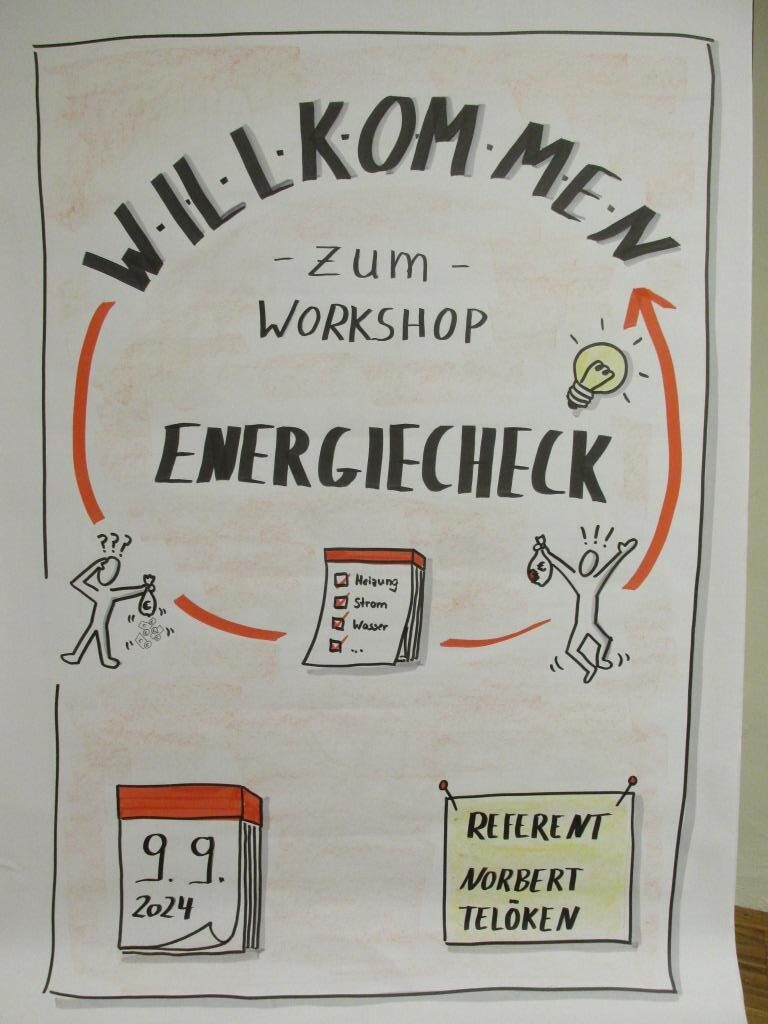 W·I·L·L·K·O·M·M·E·N
- Zum -
WORKSHOP
ENERGIECHECK
???
€
!!!
€
Heizung
Strom
Wasser
...
9. 9.
2024
REFERENT
NORBERT
TELÖKEN